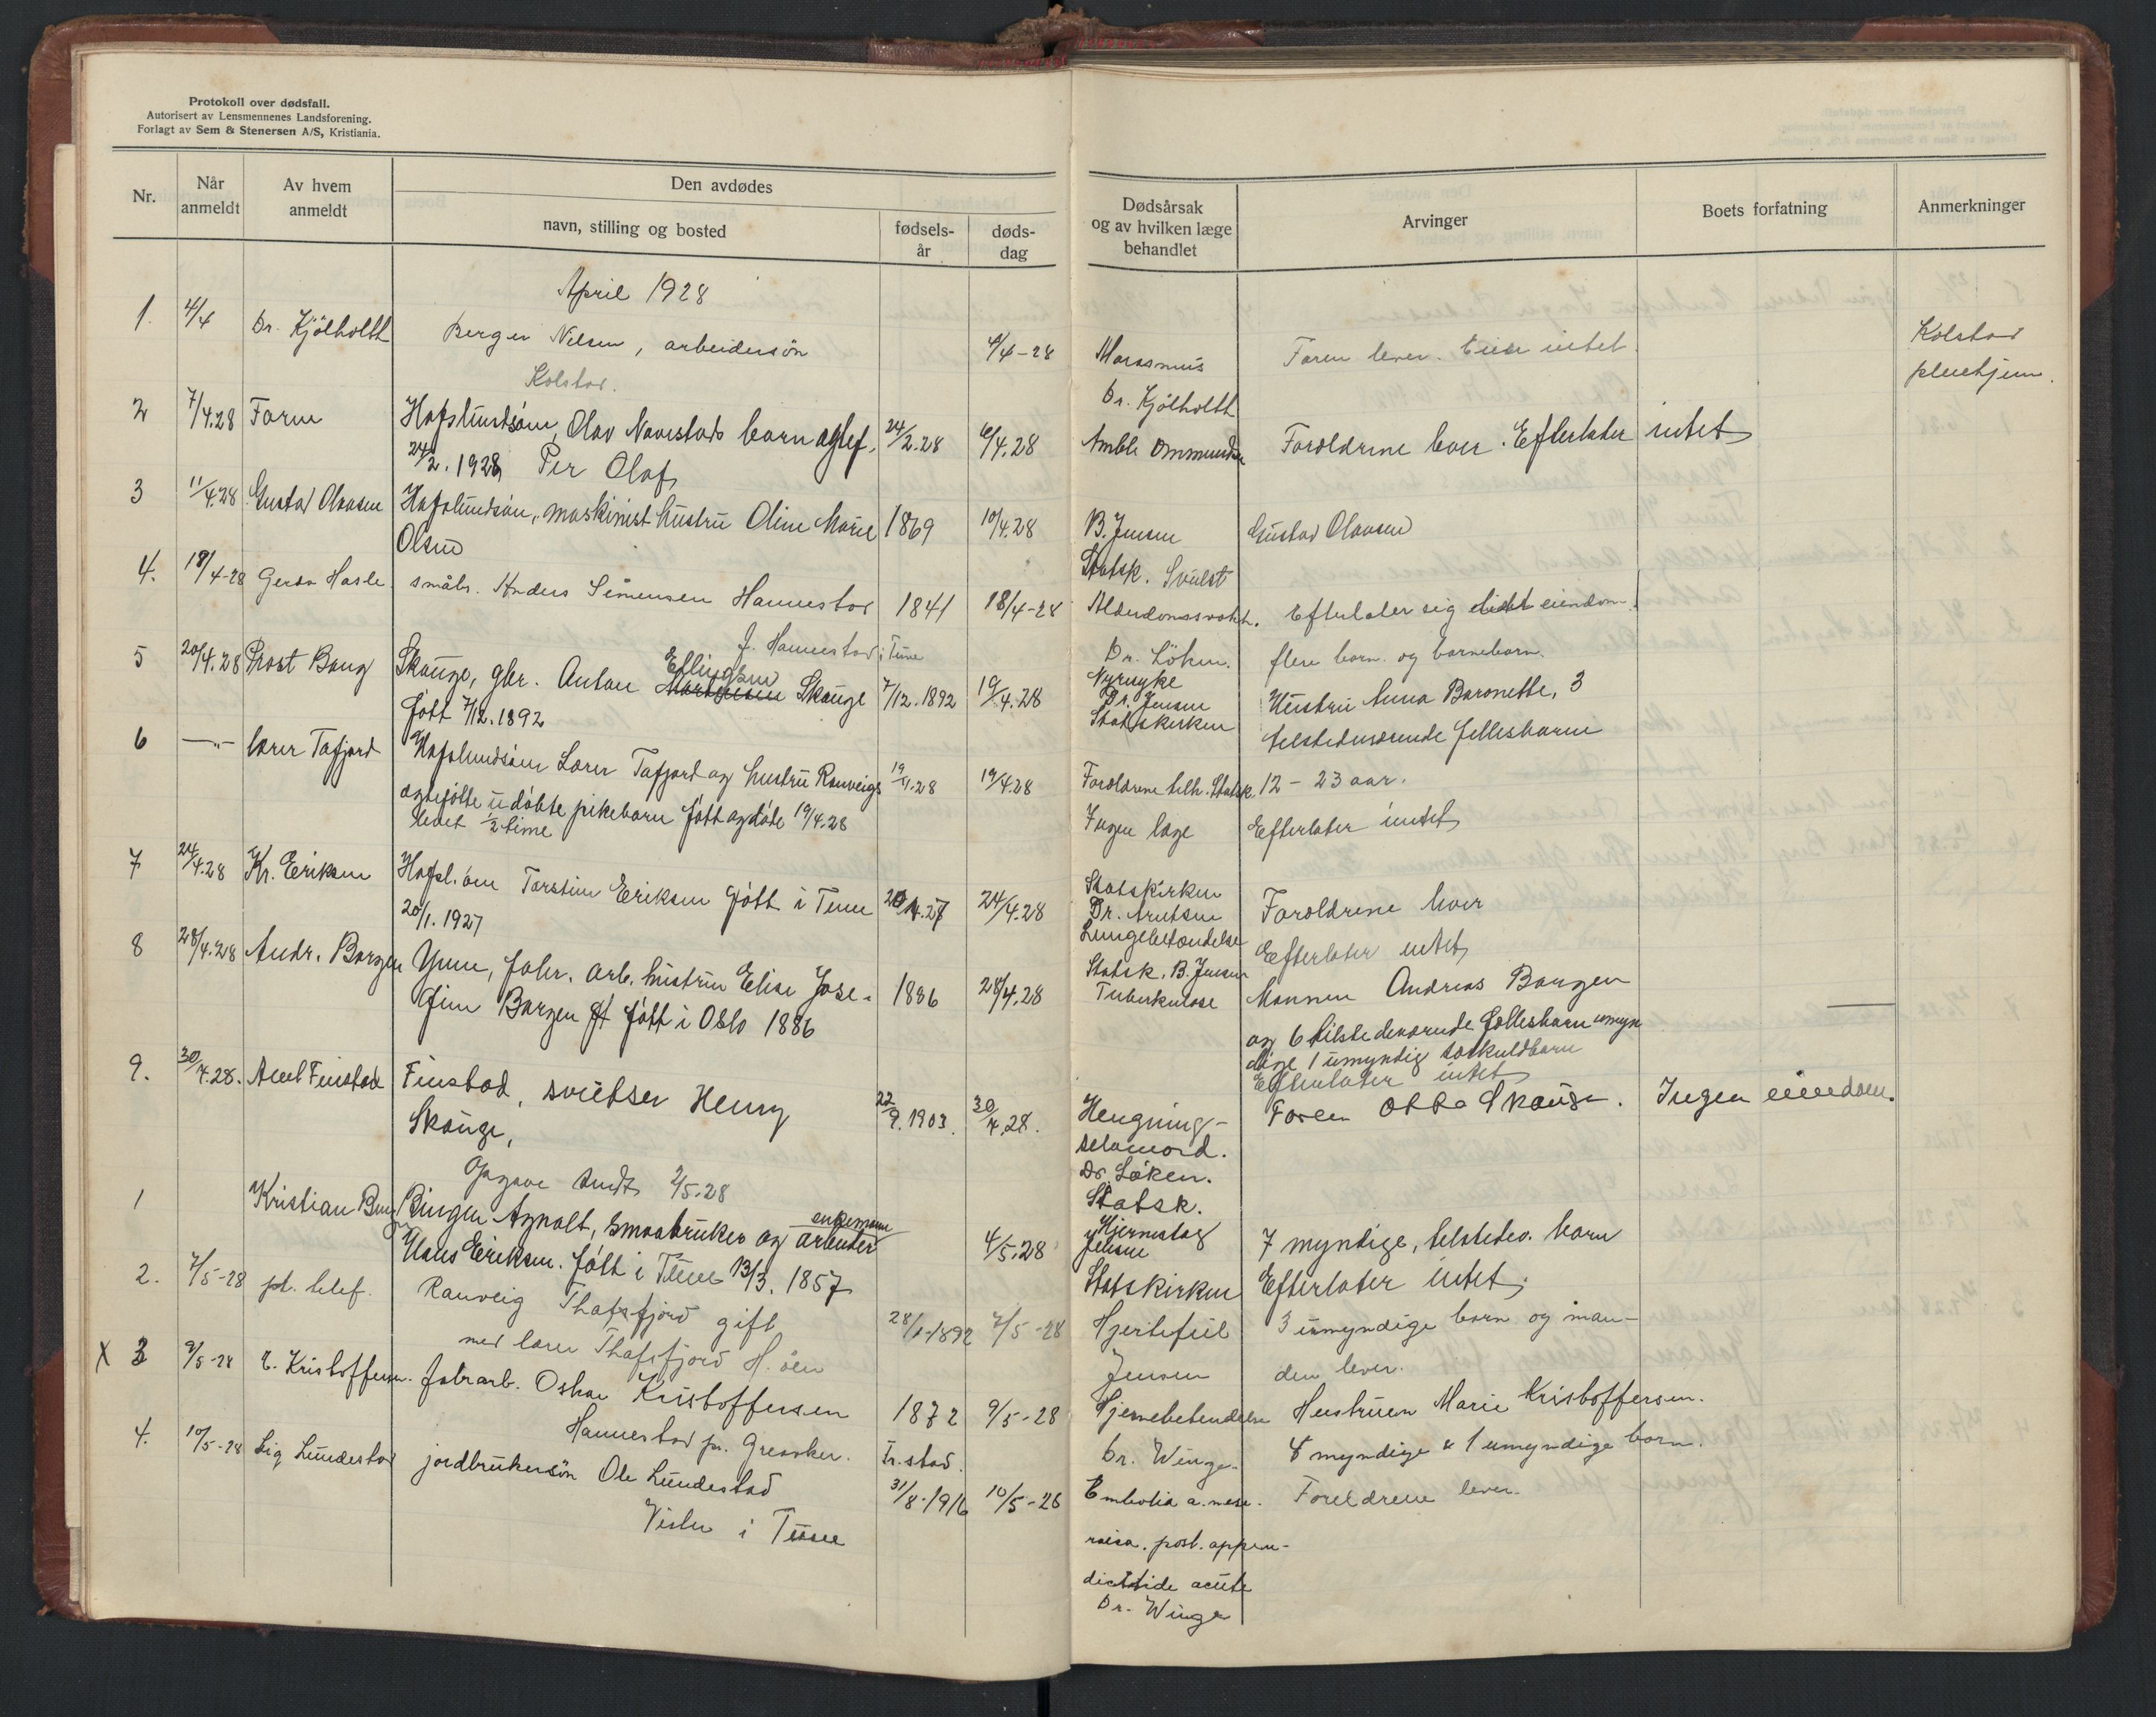 Protokoll over dødsfall.
Autorisert av Lensmennenes Landsforening.
Forlagt av Sem & Stenersen A/S, Kristiania.
Nr. Når anmeldt Av hvem anmeldt Den avdødes
navn, stilling og bosted fødsels-år døds-dag
Dødsårsak og av hvilken læge behandlet Arvinger Boets forfatning Anmerkninger
April 1928
1. 4/4 Dr. Kjölholtt Berger Nilsen, arbeidersön 4/4-28 Marasmus Faren lever. Eier intet. Kolstad
Kolstad. Dr. Kjölholtt
2 7/4.28 Faren Hafslundsöen, Olav Navestads barn 24/2.28 6/4.28 Amble Ommundsen Foreldrene lever. Efterlater intet
24/2.1928 Per Olaf
3 11/4.28 Gustav Olavsen Hafslundsöen, maskinist hustru Oline Marie 1869 10/4.28 B. Jensen Gustav Olavsen
Olsen Statsk. Svulst
4. 18/4-28 Gerda Hasle småbr. Anders Simensen Hannestad 1841 18/4-28 Efterlater sig eiendom.
f. Hannestad i Tune Dr. Löken. flere barn og barnebarn.
5 20/4.28 Prost Bang Skauge, gbr. Anton Ellingsen Skauge 7/12.1892 19/4.28 Nyresyke Hustru Anna Baronette, 3
født 7/12.1892 Dr. Jensen
Statskirken tilstedeværende fellesbarn
6 —"— lærer Tafjord Hafslundsöen Lærer Tafjord og hustru Ranveigs 19/4.28 19/4.28 Foreldrene tilh. Statsk. 12 - 23 aar.
ægtefødte udøbte pikebarn født og døde 19/4.28 Ingen læge Efterlater intet
levet 1/2 time
7 24/4.28 Kr. Eriksen Hafsl.öen Torstein Eriksen født i Tune 24/4.28 Statskirken Foreldrene lever
20/1.1927 Dr. Arntsen
Lungebetændelse Efterlater intet
8 28/4.28 Andr. Borgen Yven, fabr. arb. hustru Elise Jose- 1886 28/4.28 Statsk. B. Jensen Mannen Andreas Borgen
fine Borgen født i Oslo 1886 Tuberkulose
og 6 tilstedeværende fællesbarn umyn
dige 1 umyndig særkuldbarn
Efterlater intet
9. 30/4.28. Axel Finstad Finstad, sveitser Henry 22/9.1903. 30/4.28. Hengning- Faren Otto Skauge. Ingen eiendom.
Skauge, selvmord.
Dr. Löken.
Opgave sendt 2/5.28 Statsk.
1 Kristian Binge Bingen Agnalt, smaabruker og enkemann arbeider 4/5.28 Hjerneslag 7 myndige, tilstedev. barn
Hans Eriksen. født i Tune 13/3.1857 Jensen
Statskirken Efterlater intet.
2. 7/5-28 pr. telef. Ranveig Thafsfjord gift 28/1-1892 7/5-28 Hjertefeil 3 umyndige barn og man-
med lærer Thafsfjord H.öen Jensen den lever.
X 3 9/5-28 E. Kristoffersen. fabrarb. Oskar Kristoffersen 1872 9/5-28 Hjernebetendelse Hustruen Marie Kristoffersen.
Hannestad pr. Greaaker. Tr.stad. Dr. Winge. 4 myndige & 1 umyndige barn.
4. 10/5-28 Sig. Lundestad jordbrukersön Ole Lundestad 31/8-1916 10/5-28 Embolia a. mese- Foreldrene lever.
Visler i Tune raica. post. appen-
dicitide acute
Dr. Winge